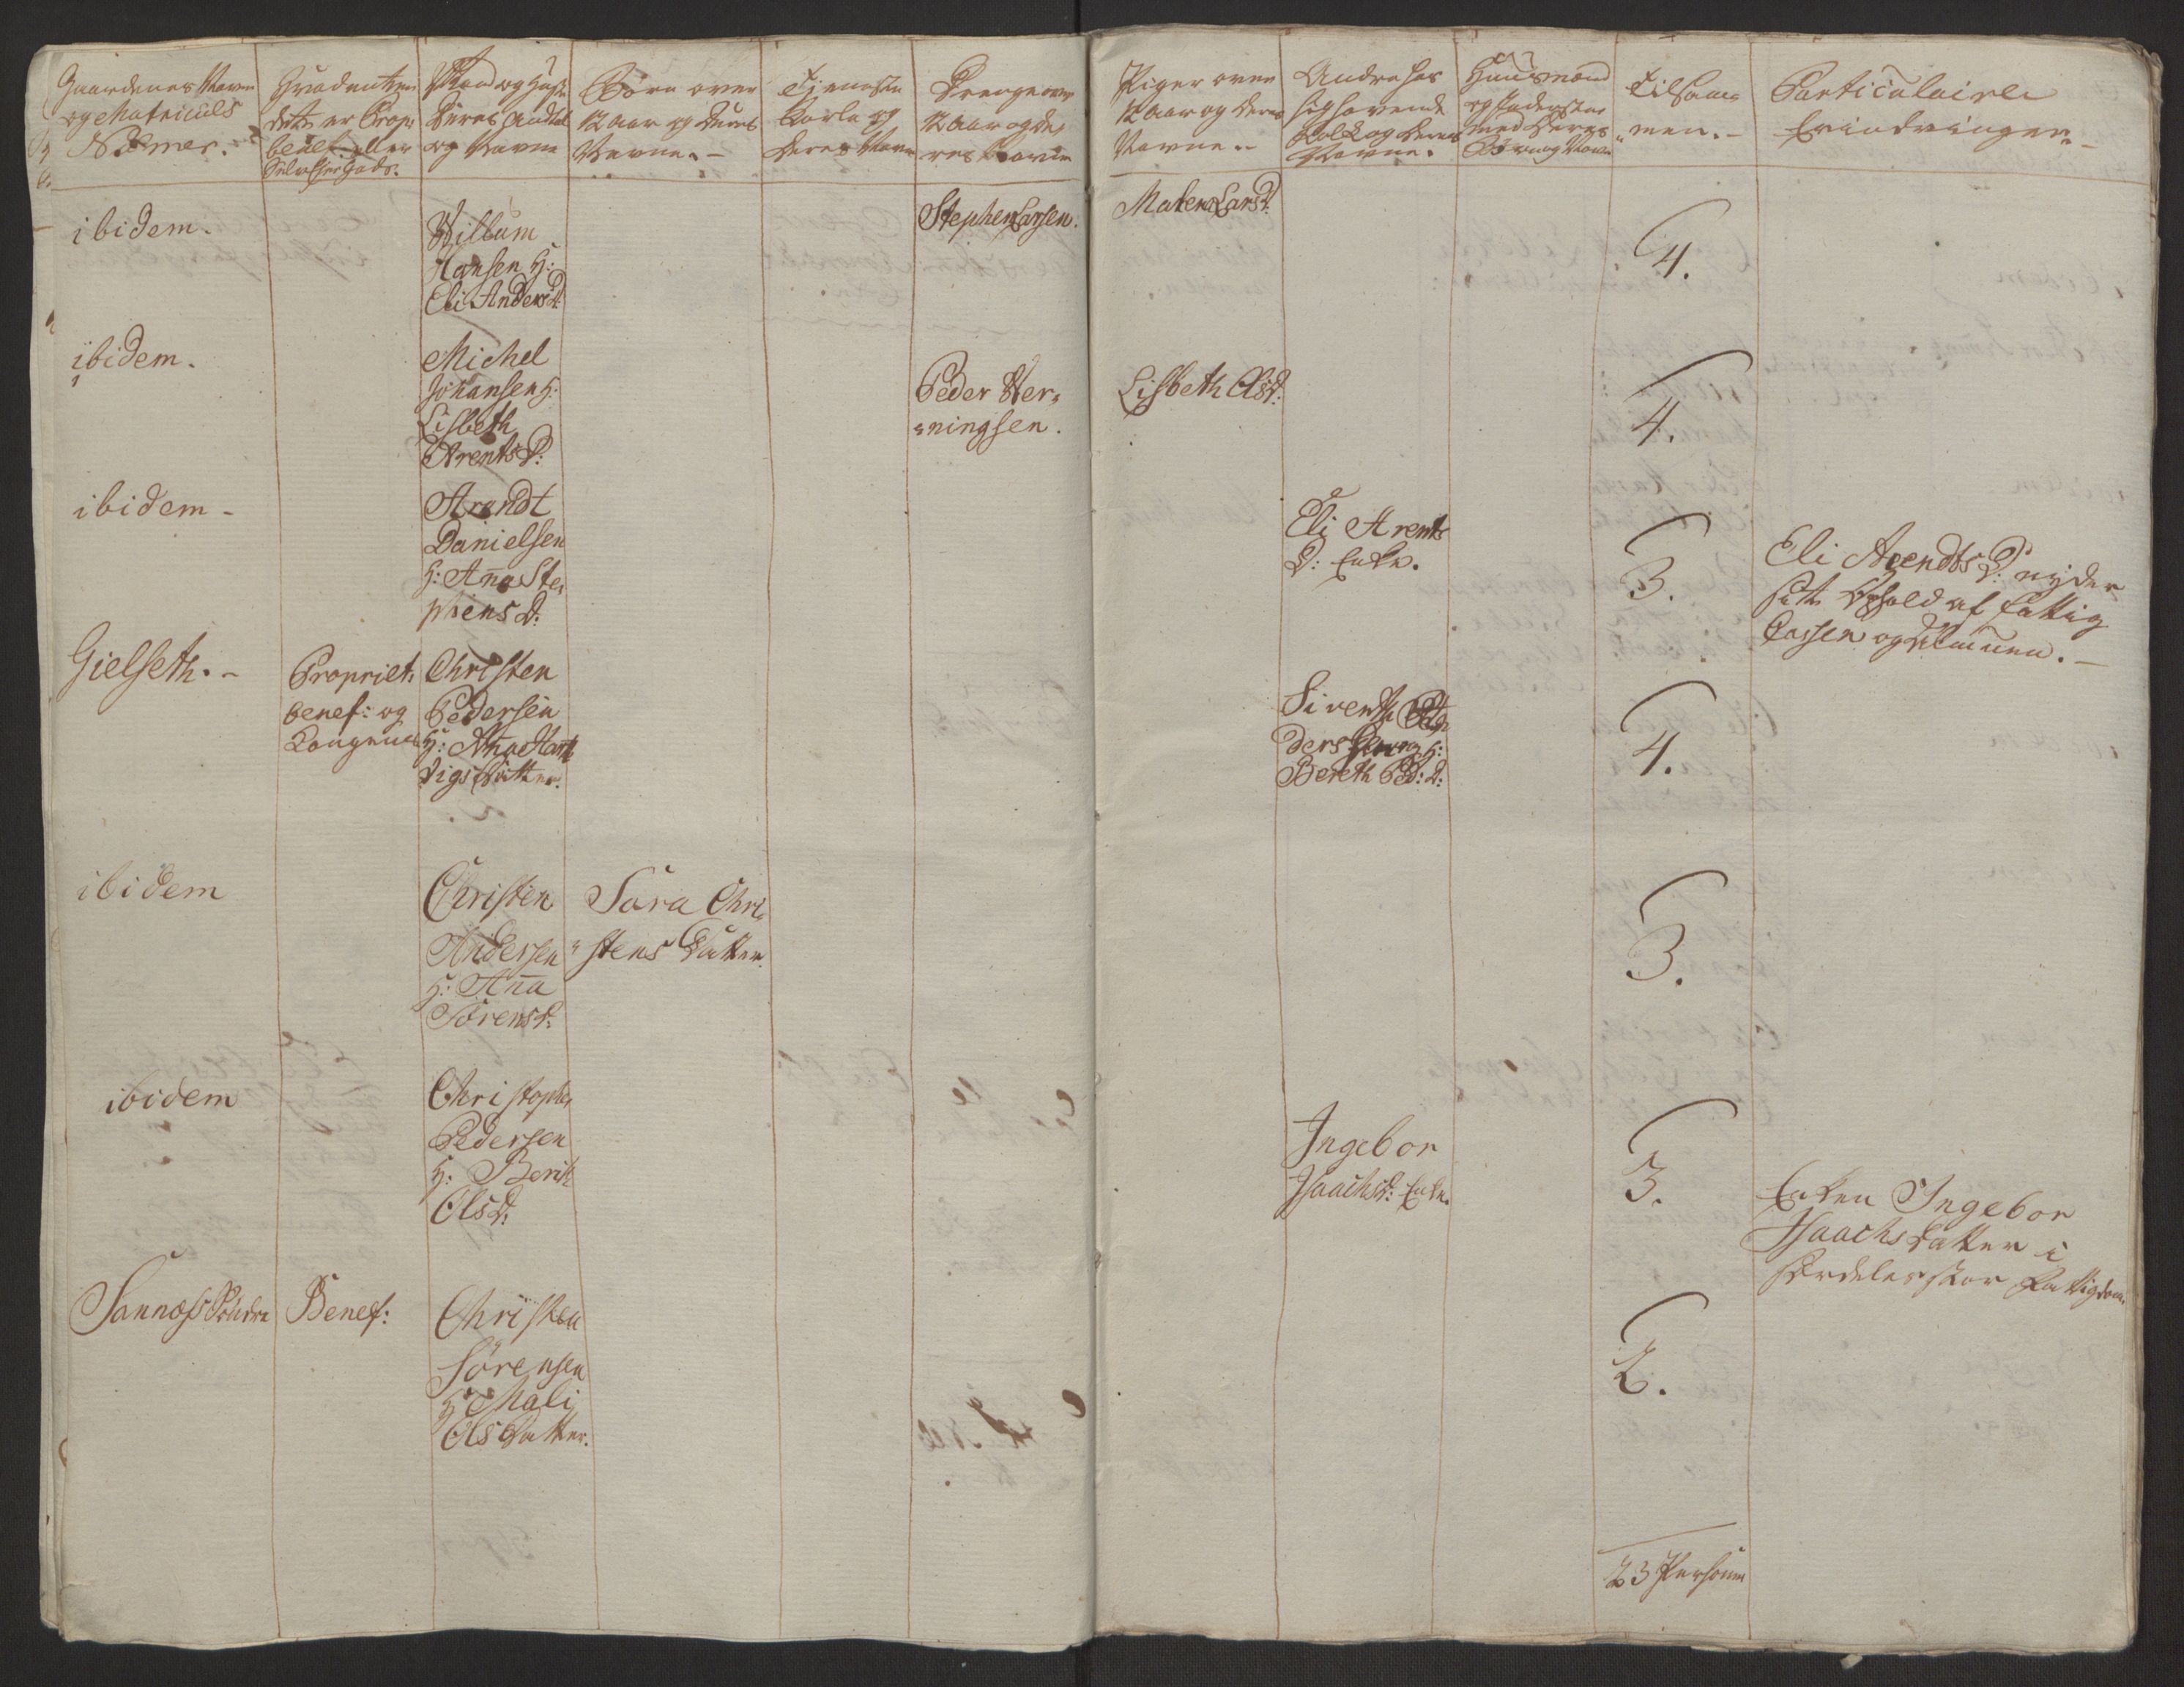 Gaardenes Navn
og Matriculs
Numer.
Hvad enten
det er Prop:
benef: eller
Selv Ejer Gods.
Mand og Hust:
Deres Andtal
og Navne
Børn over
12 Aar og deres
Navne. -
Tjeneste
Karle og
deres Navne
Drenge over
12 Aar og de,
res Navne
Piger over
12 Aar og deres
Navne. -
Andre hos
sig havende
Folk og deres
Navne.
Huusmænd
og Inderster
med deres
Børn og Navne
Tilsam=
men. -
Particulaire
Erindringer. -
ibidem.
Willum
Hansen H:
Eli Anders D:
Stephen Larsen.
Maren Lars D:
4.
ibidem.
Michel
Johansen H:
Lisbeth
Arents D:
Peder Her=
=ningsen.
Lisbeth Ols D:
4.
ibidem -
Arendt
Danielsen
H: Aña Ste,
phens D:
Eli Arents
D: Enke.
3.
Eli Arendts D: nyder
sit Ophold af Fattig
Cassen og Almuen. -
Gielseth. -
Propriet:
benef: og
Christen
Pedersen
H: Aña Hart
vigs Datter.
ders
Bereth Ped: D:
4.
ibidem
Christen
Andersen
H: Aña
Sørens D:
Sara Chri,
=stens Datter.
3.
ibidem
Christopher
Pedersen
H: Berit
Ols D:
Ingebor
Isaachs D: Enke.
3.
Enken Ingebor
Isaachs Datter i
særdeles stor Fattigdom.
Sannæss Søndre
Benef:
Christen
Sörensen
H: Mali
Ols Datter.
2.
23 Personer